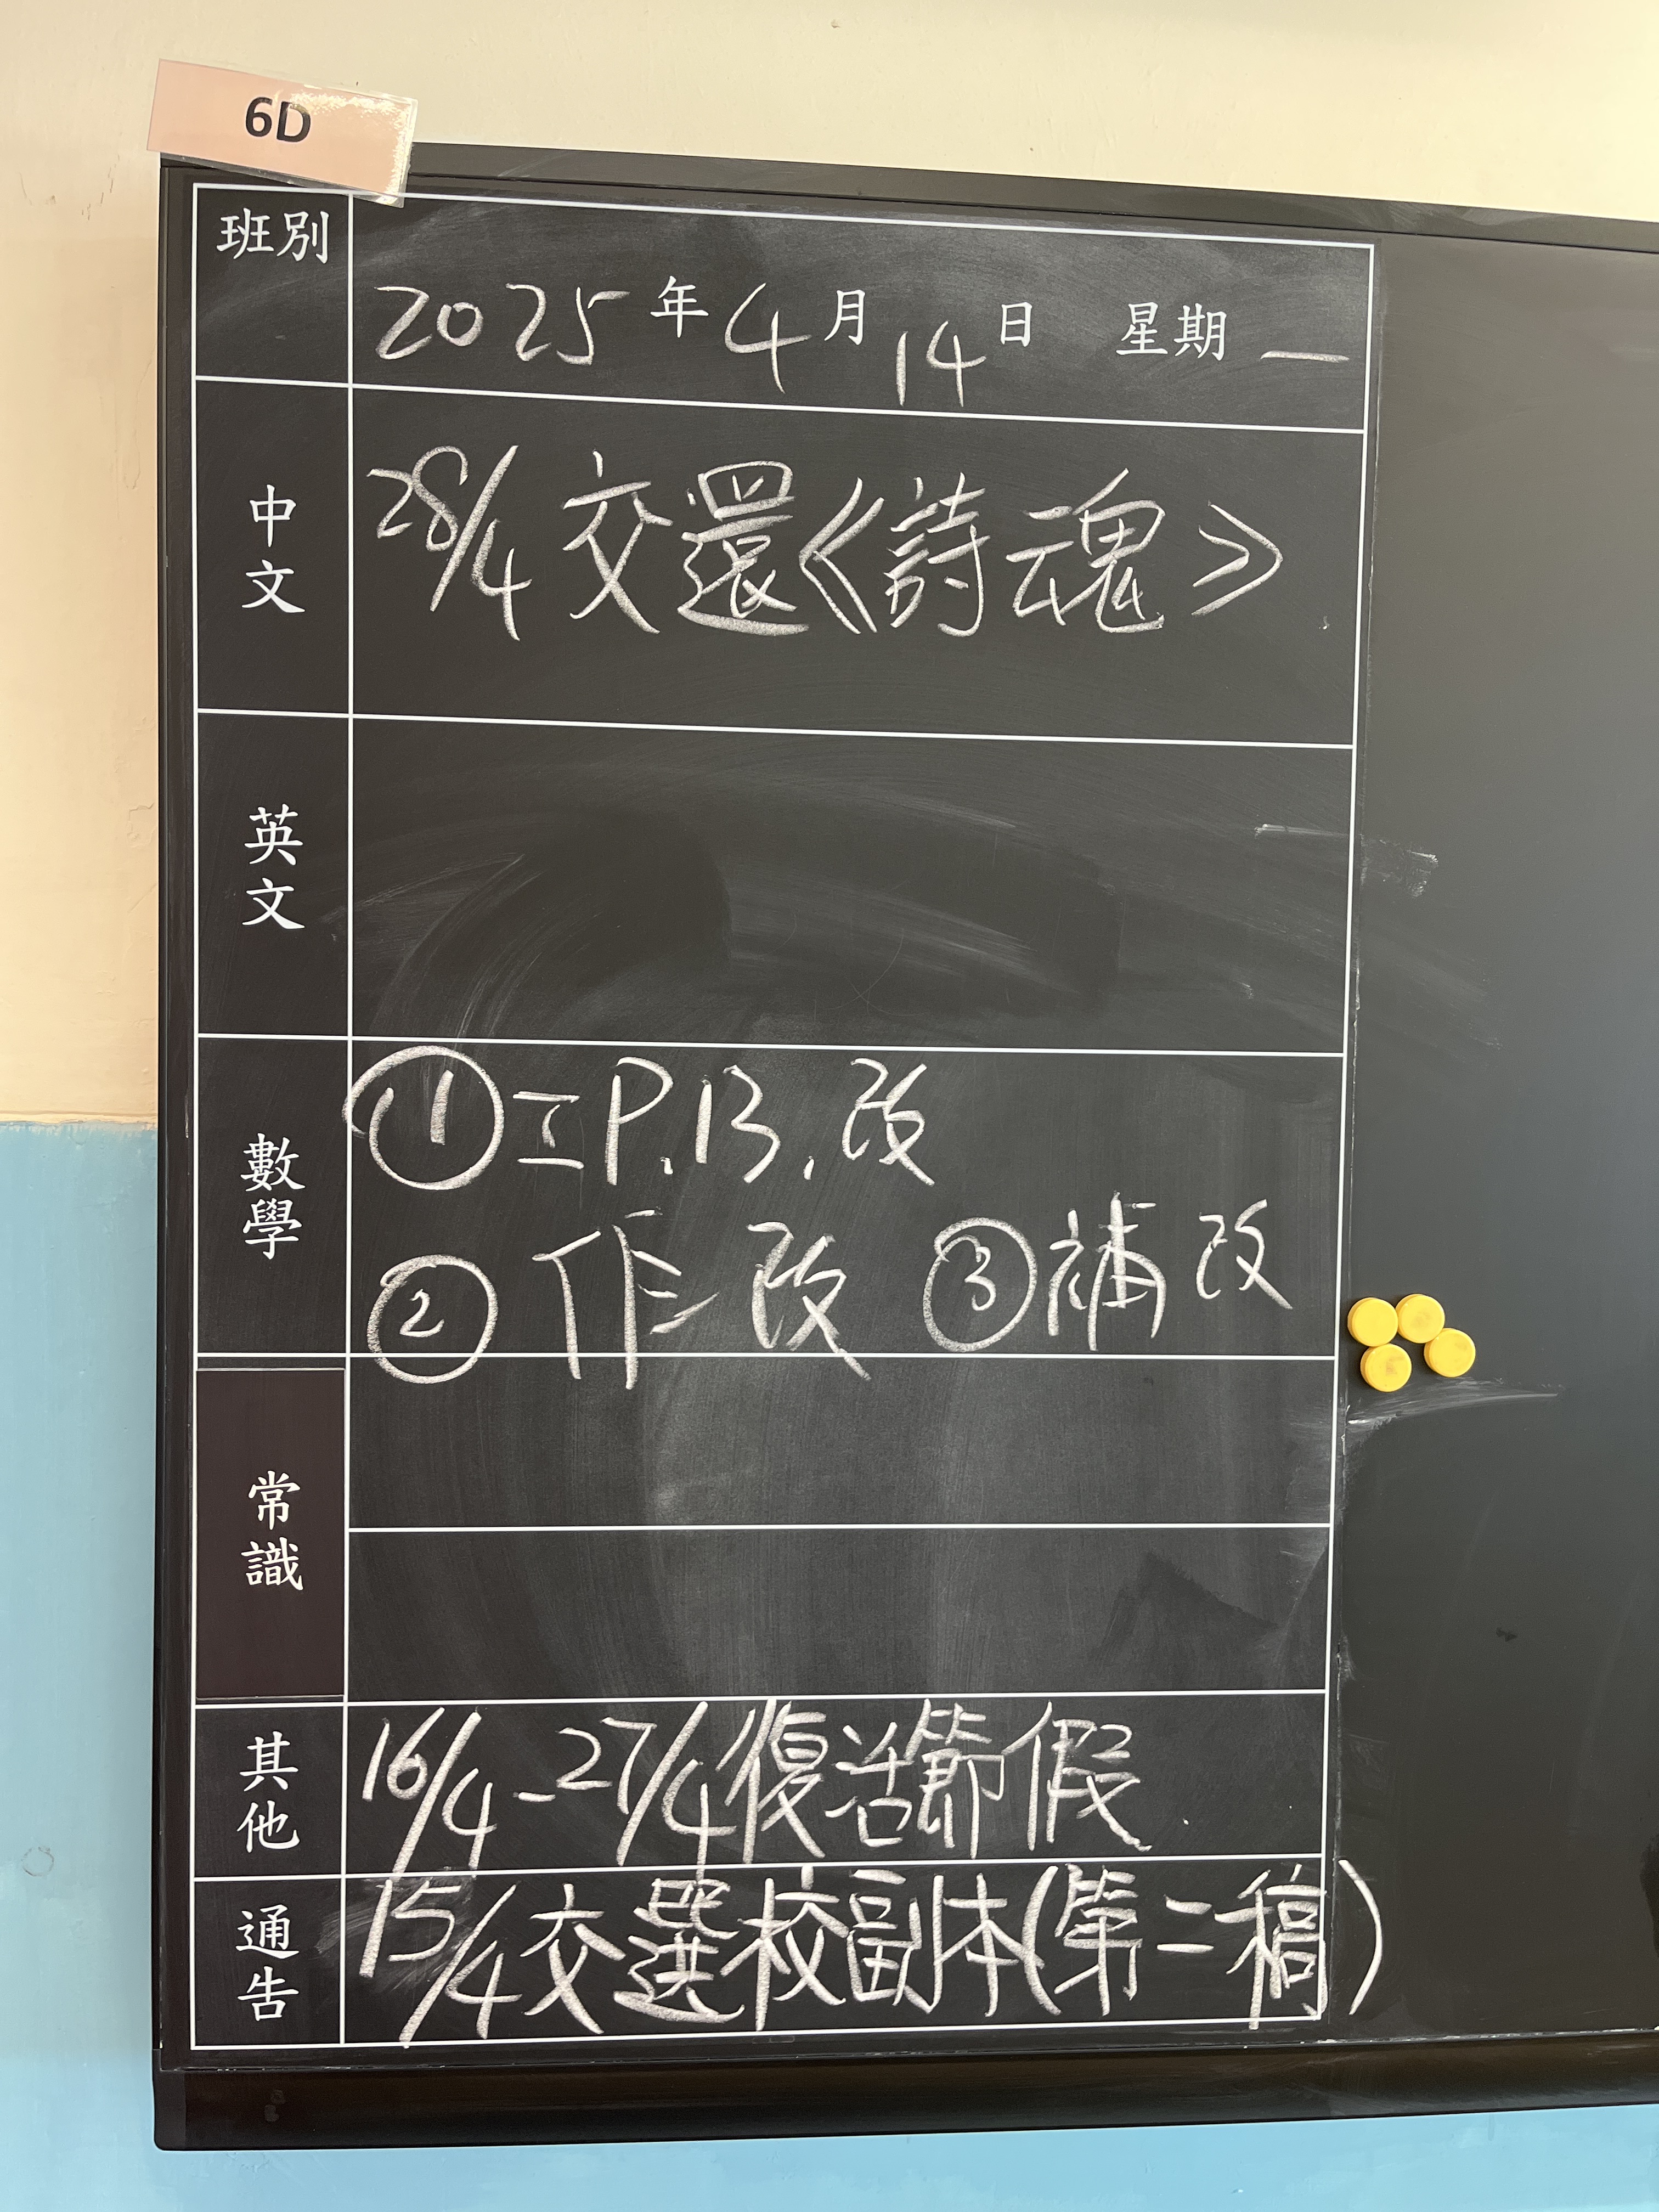 6D
班別
2025年4月14日 星期一
中文
28/4 交還《詩魂》
英文
數學
① 工P.13.改
② 作改 ③ 補改
常識
其他
16/4-27/4復活節假
通告
15/4交選校副本(第二稿)